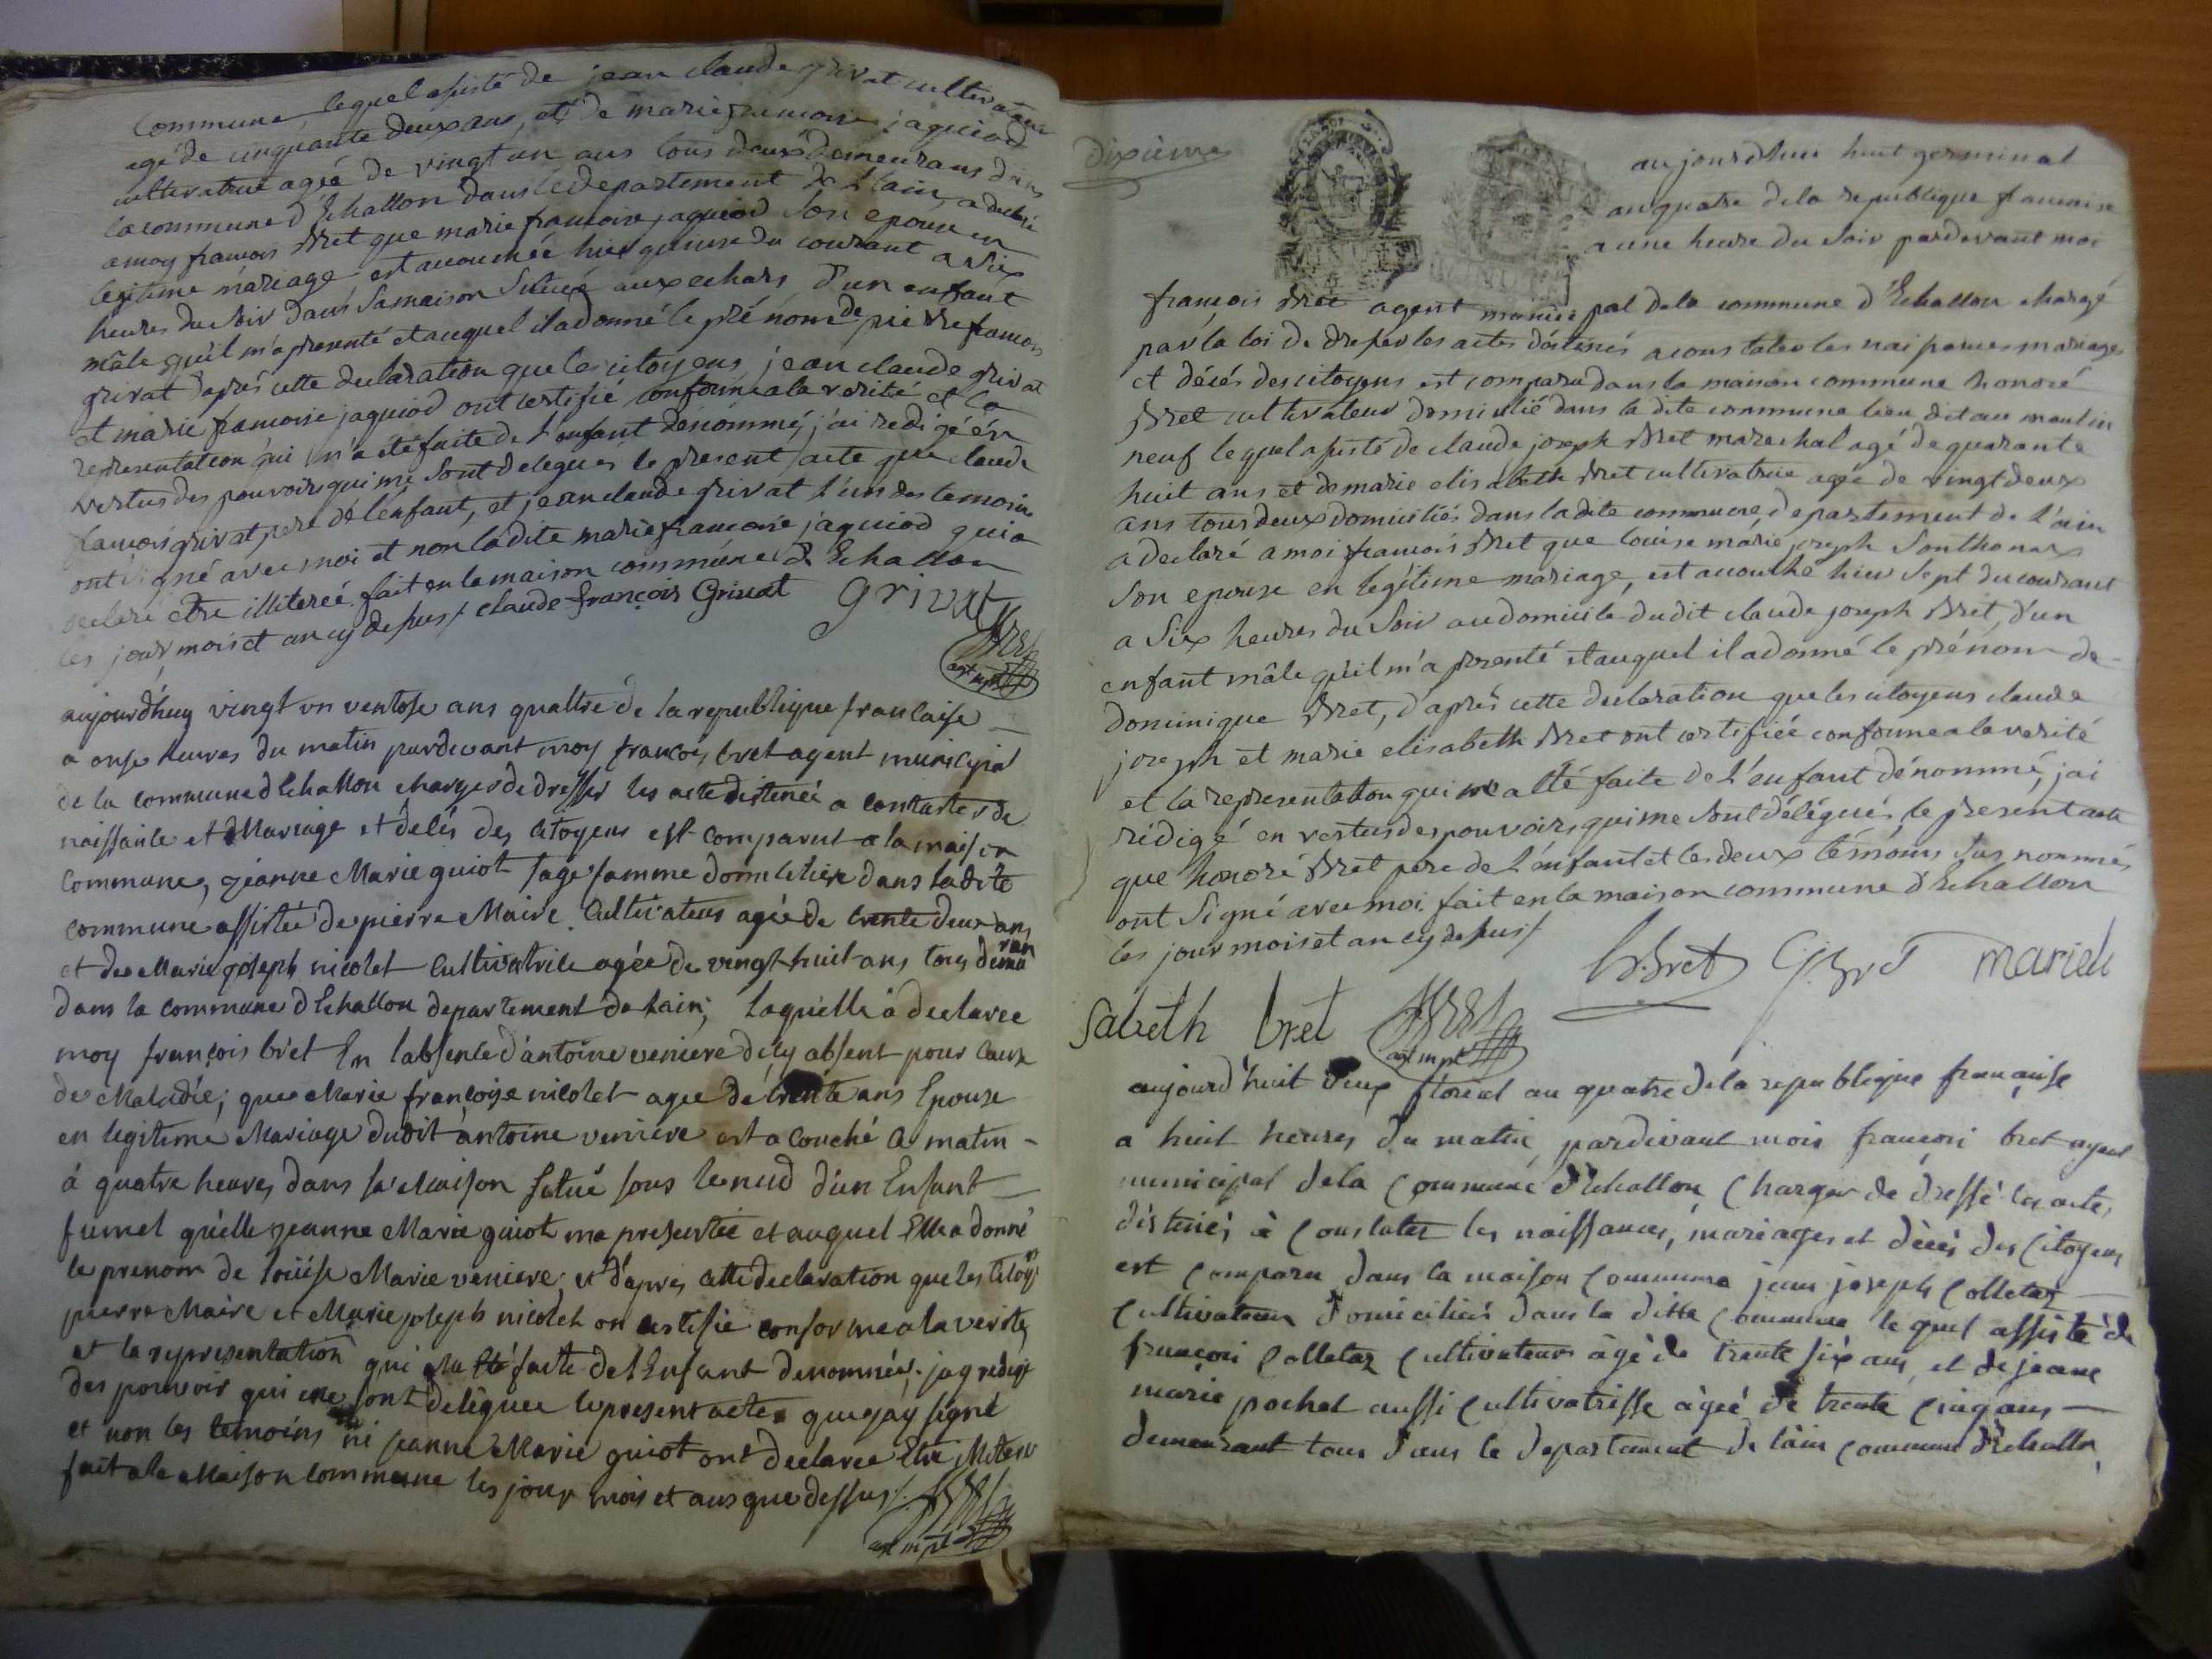 commune, lequel assisté de jean claude grivat cultivateur
agé de cinquante deux ans, et de marie francoise jaquiod
cultivatrice agée de vingt un ans tous deux demeurans dans
la commune d'Echallon dans le departement de l'ain, a declaré
a moy francois Bret que marie francoise jaquiod son epouse en
legitime mariage est acouchée hier quinse du courant a six
heures du soir dans sa maison située aux echars d'un enfant
mâle qu'il m'a presenté et auquel il a donné le prénom de pierre francois
grivat d'aprés cette declaration que les citoyens jean claude grivat
et marie francoise jaquiod ont certifié conforme a la verité et la
representation qui m'a été faite de l'enfant dénommé, j'ai redigé en
vertus des pouvoirs qui me sont delegués le present acte que claude
francois grivat, pere de l'énfant, et jean claude grivat l'un des temoins
ont signé avec moi et non la dite marie francoise jaquiod qui a
declaré etre illiterée fait en la maison commune d'Echallon
les jour mois et an cy dessus / claude françois Grivat Grivat
agt mpal
aujourd'huy vingt un ventose ans quattre de la republique francaise
a onse heures du matin pardevant moy francois bret agent municipal
de la commune d Echallon charger de dresser les acte distinée a constater de
naissante et Mariage et délés des citoyens est comparut a la maison
commune, jéanne Marie guiot sage famme domiciliere dans la dite
commune assistée de pierre Maire Cultivateur agée de trente deux ans
et de Marie joseph nicolet Cultivatrile agée de vingt huit ans tous demeuran
dans la commune d Echallon departement de lain; laquelle à declaree
moy françois bret En l'absente d'antoine veniere d'icy absent pour cause
de Maladie; que Marie françoise nicolet agee de trente ans Epouse
en legitime Mariage dudit antoine veniere est a couché ce matin
à quatre heures dans sa Maison situé sous le nud d'un Enfant
fumel quelle jeanne Marie guiot ma presentée et auquel Elle a donné
le prenom de loüise Marie veniere, et d'apres cette declaration que les citoys
pierre Maire et Marie joseph nicolet on certifie conforme a la verite
et la representation qui ma été faite de l Enfant denommée. jay redige
des pouvoir qui me sont deléguee le present acte que jay signé
et non les temoins ni jeanne Marie guiot ont declaree Etre iliteré
fait a la Maison commune les jour mois et ans que dessus /.
agt mpal
dixieme
aujourdhui huit germinal
an quatre de la republique francaise
a une heure du soir pardevant moi
MINUTE
françois Bret agent municipal de la commune d'Echallon chargé
par la loi de dresser les actes déstinés a constater les naissances mariages
et décés des citoyens est comparu dans la maison commune honoré
Bret cultivateur domicilié dans la dite commune lieu dit au moulin
neuf lequel assisté de claude joseph Bret marechal agé de quarante
huit ans et de marie elisabeth Bret cultivatrice agée de vingt deux
ans tous deux domiciliés dans la dite commune, departement de l'ain
a declaré a moi francois Bret que louise marie joseph Sonthonax
son epouse en legitime mariage, est acouché hier sept du courant
a six heures du soir au domicile dudit claude joseph Bret, d'un
enfant mâle qu'il m'a presenté et auquel il a donné le prénom de
dominique Bret, d'aprés cette declaration que les citoyens claude
joseph et marie elisabeth Bret ont certifiée conforme a la verité
et la representation qui m'a été faite de l'enfant dénommé, j'ai
rédigé en vertus des pouvoirs qui me sont délégués le present acte
que honoré Bret pere de l'enfant et les deux témoins sus nommés
ont signé avec moi fait en la maison commune d'Echallon
les jour mois et an cy dessus /
h. Bret C J. Bret marieli
sabeth bret
agt mpal
aujourd'huit deux floreal an quatre de la republique française
a huit heures du matin pardevant mois françois bret agent
municipal de la Commune d'Echallon Charger de dressé les actes
déstinés à Constater les naissances, mariages et décès des Citoyens
est Comparu dans la maison Commune jean joseph Colletaz
Cultivateur domiciliés dans la ditte Commune le quel assisté de
françois Colletaz Cultivateur âgé de trente six ans et de jeane
marie pochet aussi Cultivatrisse âgée de trente Cinq ans
demeurant tous dans le departement de l'ain commune d'Echallon,